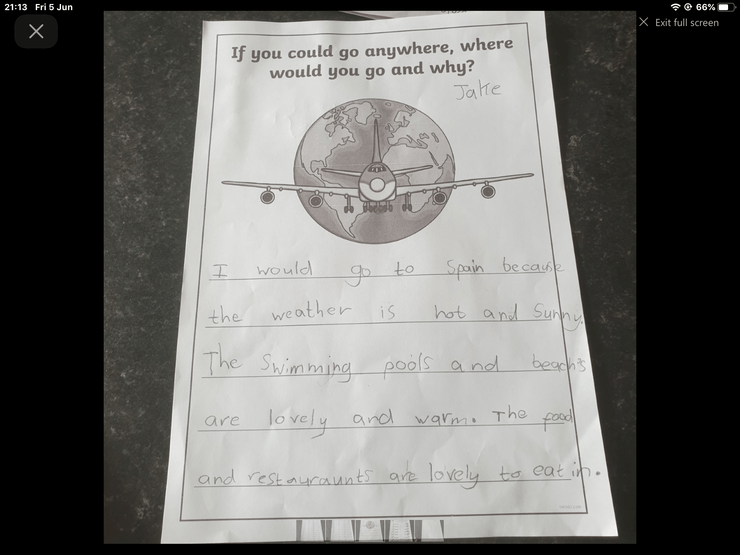 21:13 Fri 5 Jun
66%
Exit full screen
If you could go anywhere, where
would you go and why?
Jake
I would go to Spain because
the weather is hot and Sunny.
The Swimming pools and beachs
are lovely and warm. The food
and restauraunts are lovely to eat in.